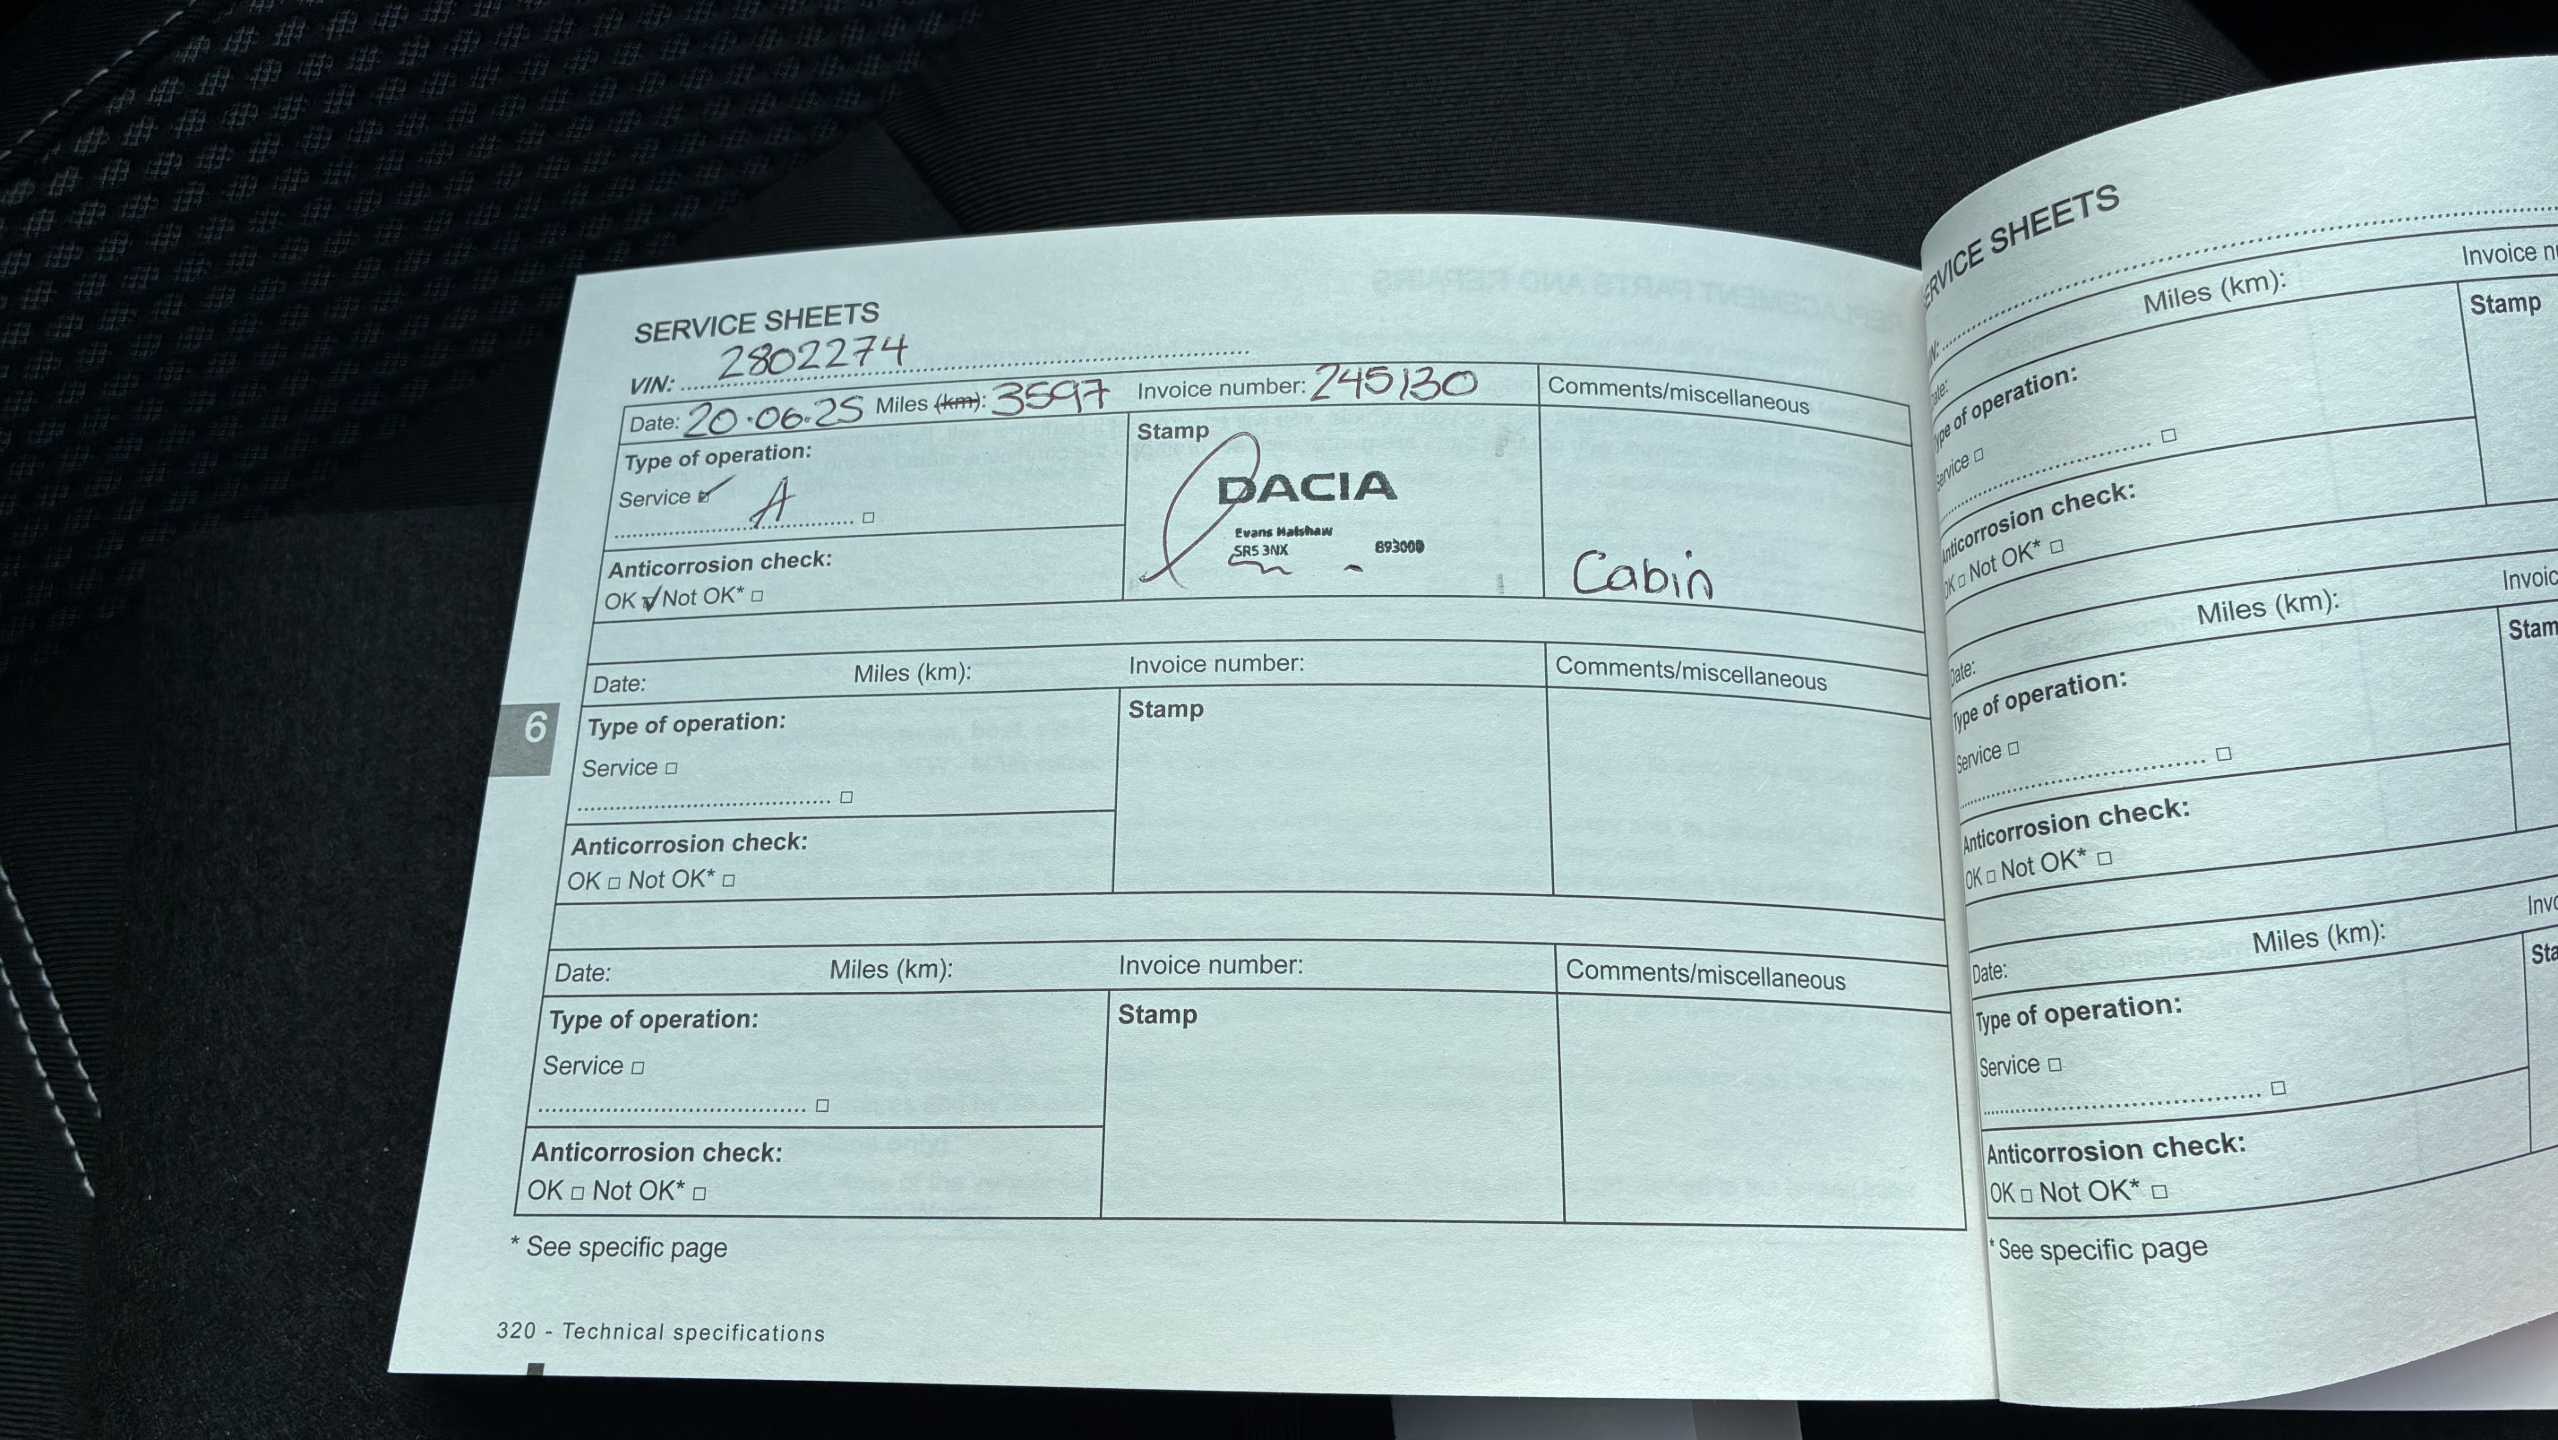 SERVICE SHEETS
VIN: 2802274
Date: 20.06.25 Miles (km): 3597 Invoice number: 245130 Comments/miscellaneous
Type of operation:
Service A
Anticorrosion check:
OK Not OK*
Stamp
DACIA
Evans Halshaw
SR5 3NX 893000
Cabin
Date: Miles (km): Invoice number: Comments/miscellaneous
Type of operation:
Service
Anticorrosion check:
OK Not OK*
Stamp
6
Date: Miles (km): Invoice number: Comments/miscellaneous
Type of operation:
Service
Anticorrosion check:
OK Not OK*
Stamp
* See specific page
320 - Technical specifications
SERVICE SHEETS
Miles (km): Invoice
Type of operation:
Service
Anticorrosion check:
OK Not OK*
Stamp
Date: Miles (km):
Type of operation:
Service
Anticorrosion check:
OK Not OK*
Date: Miles (km):
Type of operation:
Service
Anticorrosion check:
OK Not OK*
* See specific page